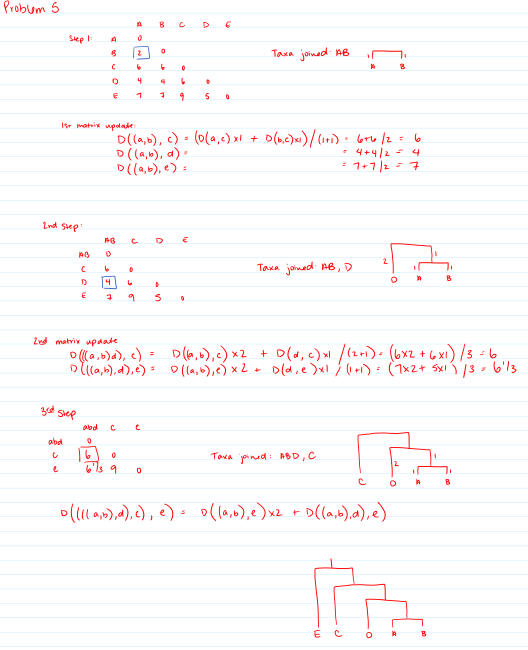 Problem 5
A B C D E
Step 1: A 0
B 2 0
C 6 6 0
D 4 4 6 0
E 7 7 9 5 0
Taxa joined: AB
1 1
A B
1st matrix update:
D((a,b), c) = (D(a,c) x1 + D(b,c)x1)/(1+1) = 6+6/2 = 6
D((a,b), d) = = 4+4/2 = 4
D((a,b), e) = = 7+7/2 = 7
2nd Step:
AB C D E
AB 0
C 6 0
D 4 6 0
E 7 9 5 0
Taxa joined: AB, D
2 1
1 1
D A B
2nd matrix update
D(((a,b)d), c) = D((a,b), c) x2 + D(d, c)x1 /(2+1) = (6x2 + 6x1) /3 = 6
D(((a,b),d),e) = D((a,b),e) x 2 + D(d,e)x1 /(1+1) = (7x2 + 5x1) /3 = 6 1/3
3rd Step
abd c e
abd 0
c 6 0
e 6 1/3 9 0
Taxa joined: ABD, C
2 1
1 1
C D A B
D((((a,b),d),c), e) = D((a,b),e)x2 + D((a,b),d),e)
E C D A B